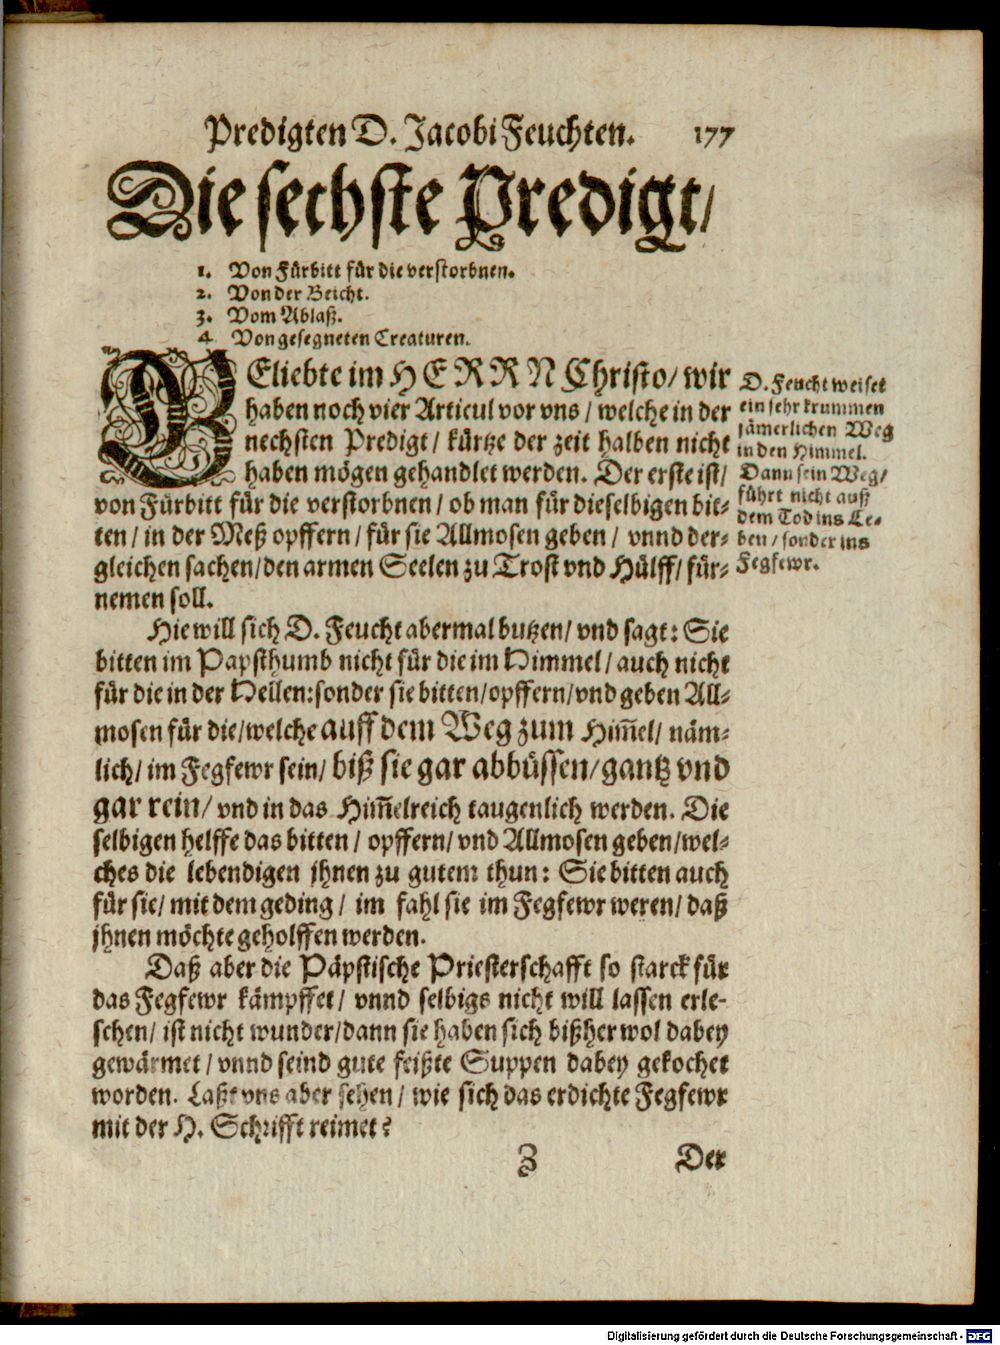 Predigten D. Jacobi Feuchten. 177
Die sechste Predigt/
1. Von Fürbitt für die verstorbnen.
2. Von der Beicht.
3. Vom Ablaß.
4 Von gesegneten Creaturen.
GEliebte im HERRN Christo/ wir
haben noch vier Articul vor vns / welche in der
nechsten Predigt / kürtze der zeit halben nicht
haben mögen gehandlet werden. Der erste ist/
von Fürbitt für die verstorbnen / ob man für dieselbigen bit-
ten / in der Meß opffern / für sie Allmosen geben / vnnd der-
gleichen sachen/ den armen Seelen zu Trost vnd Hülff/ für-
nemen soll.
D. Feucht weiset
ein sehr krummen
jämerlichen Weg
in den Himmel.
Dann sein Weg/
führt nicht auß
dem Tod ins Le-
ben / sonder ins
Fegfewr.
Hie will sich D. Feucht abermal butzen/ vnd sagt: Sie
bitten im Papsthumb nicht für die im Himmel / auch nicht
für die in der Hellen: sonder sie bitten/opffern/vnd geben All-
mosen für die/welche auff dem Weg zum Him̃el/ näm-
lich/ im Fegfewr sein/ biß sie gar abbüssen/gantz vnd
gar rein/ vnd in das Him̃elreich taugenlich werden. Die
selbigen helffe das bitten / opffern/ vnd Allmosen geben/wel-
ches die lebendigen jhnen zu gutem thun: Sie bitten auch
für sie/ mit dem geding / im fahl sie im Fegfewr weren/ daß
jhnen möchte geholffen werden.
Daß aber die Päpstische Priesterschafft so starck für
das Fegfewr kämpffet/ vnnd selbigs nicht will lassen erle-
schen/ ist nicht wunder/dann sie haben sich bißher wol dabey
gewärmet / vnnd seind gute feißte Suppen dabey gekochet
worden. Laßt vns aber sehen / wie sich das erdichte Fegfewr
mit der H. Schrifft reimet?
Z Der
Digitalisierung gefördert durch die Deutsche Forschungsgemeinschaft - DFG